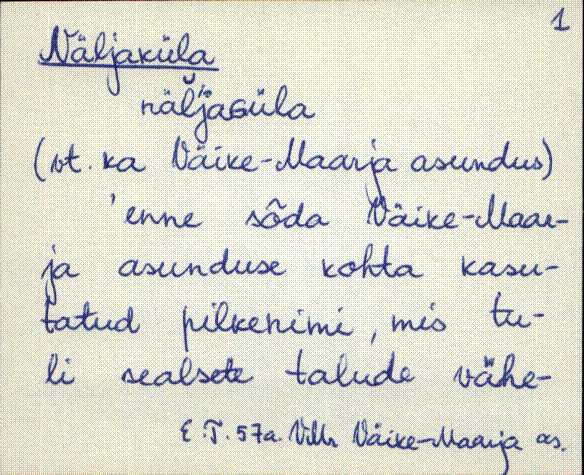 1
Näljaküla
näl̆jaɢüla
(vt. ka Väike-Maarja asundus)
'enne sõda Väike-Maar-
ja asunduse kohta kasu-
tatud pilkenimi, mis tu-
li sealsete talude vähe-
E.T. 57a. VMr Väike-Maarja as.